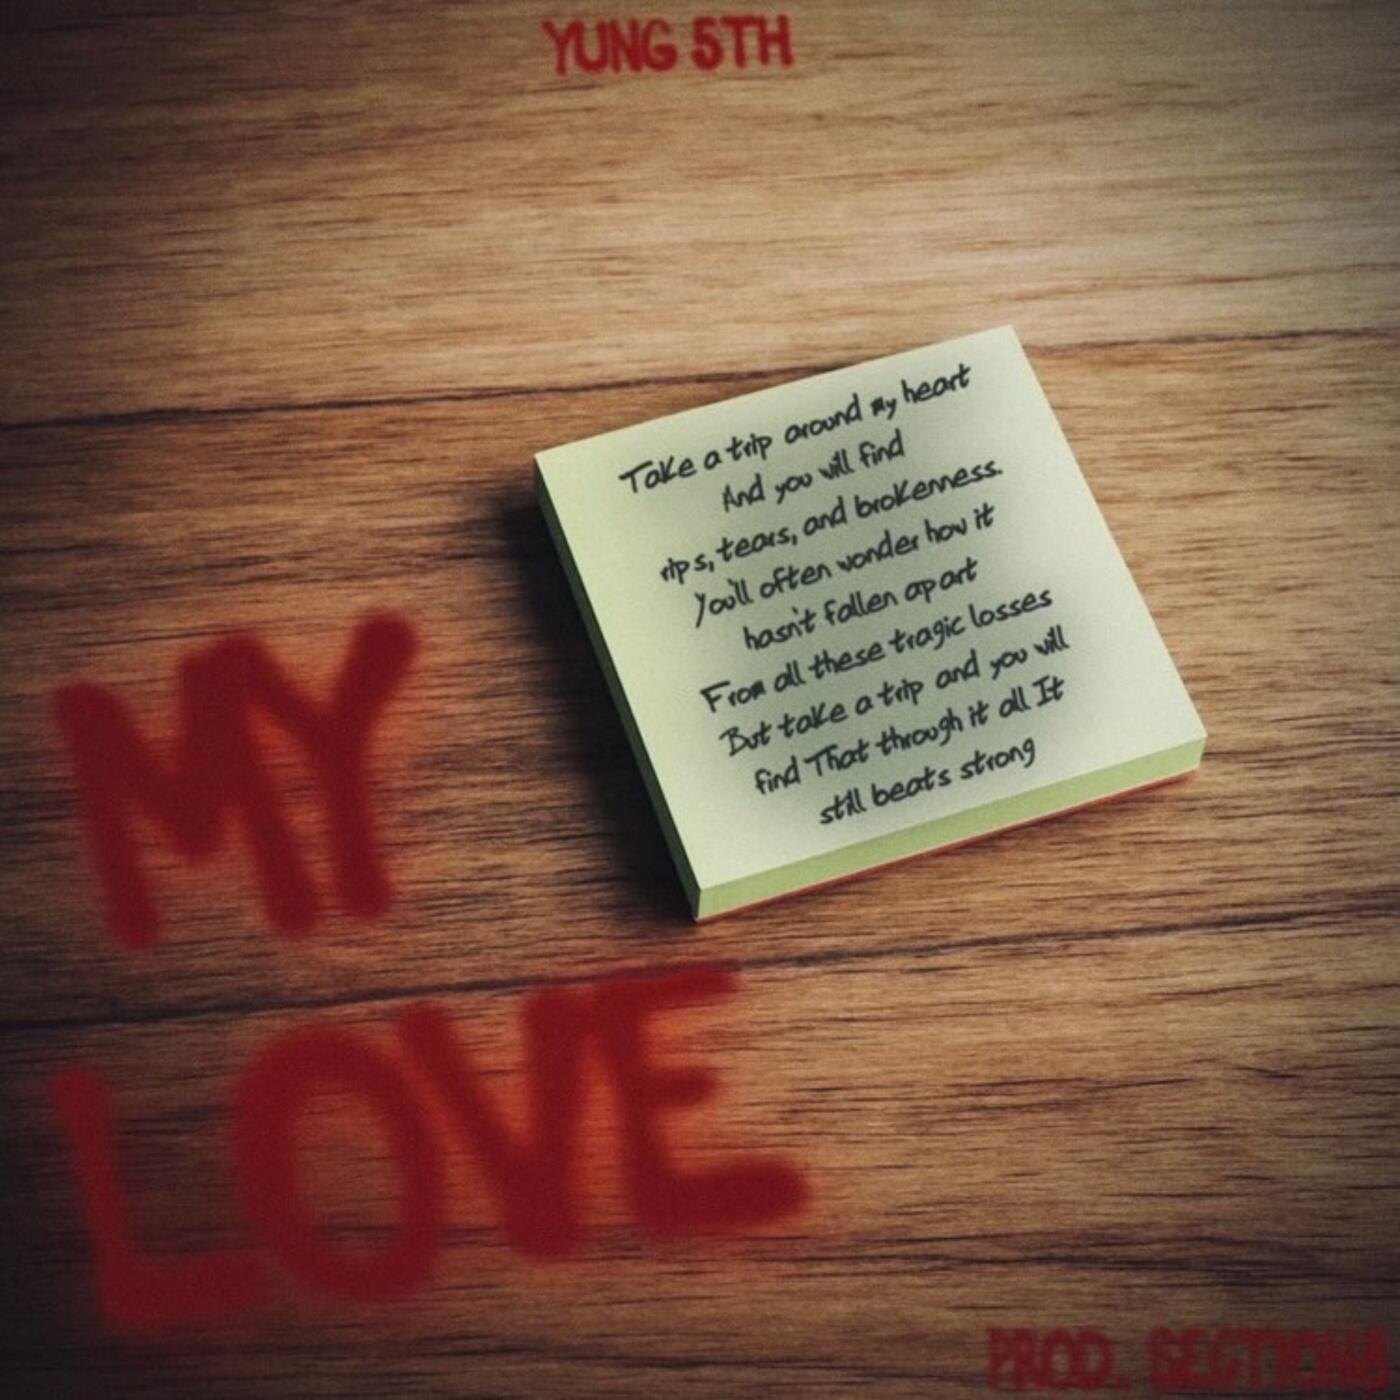 YUNG 5TH
Take a trip around my heart
And you will find
rips, tears, and brokenness.
You'll often wonder how it
hasn't fallen apart
From all these tragic losses
But take a trip and you will
find That through it all It
still beats strong
MY
LOVE
PROD.